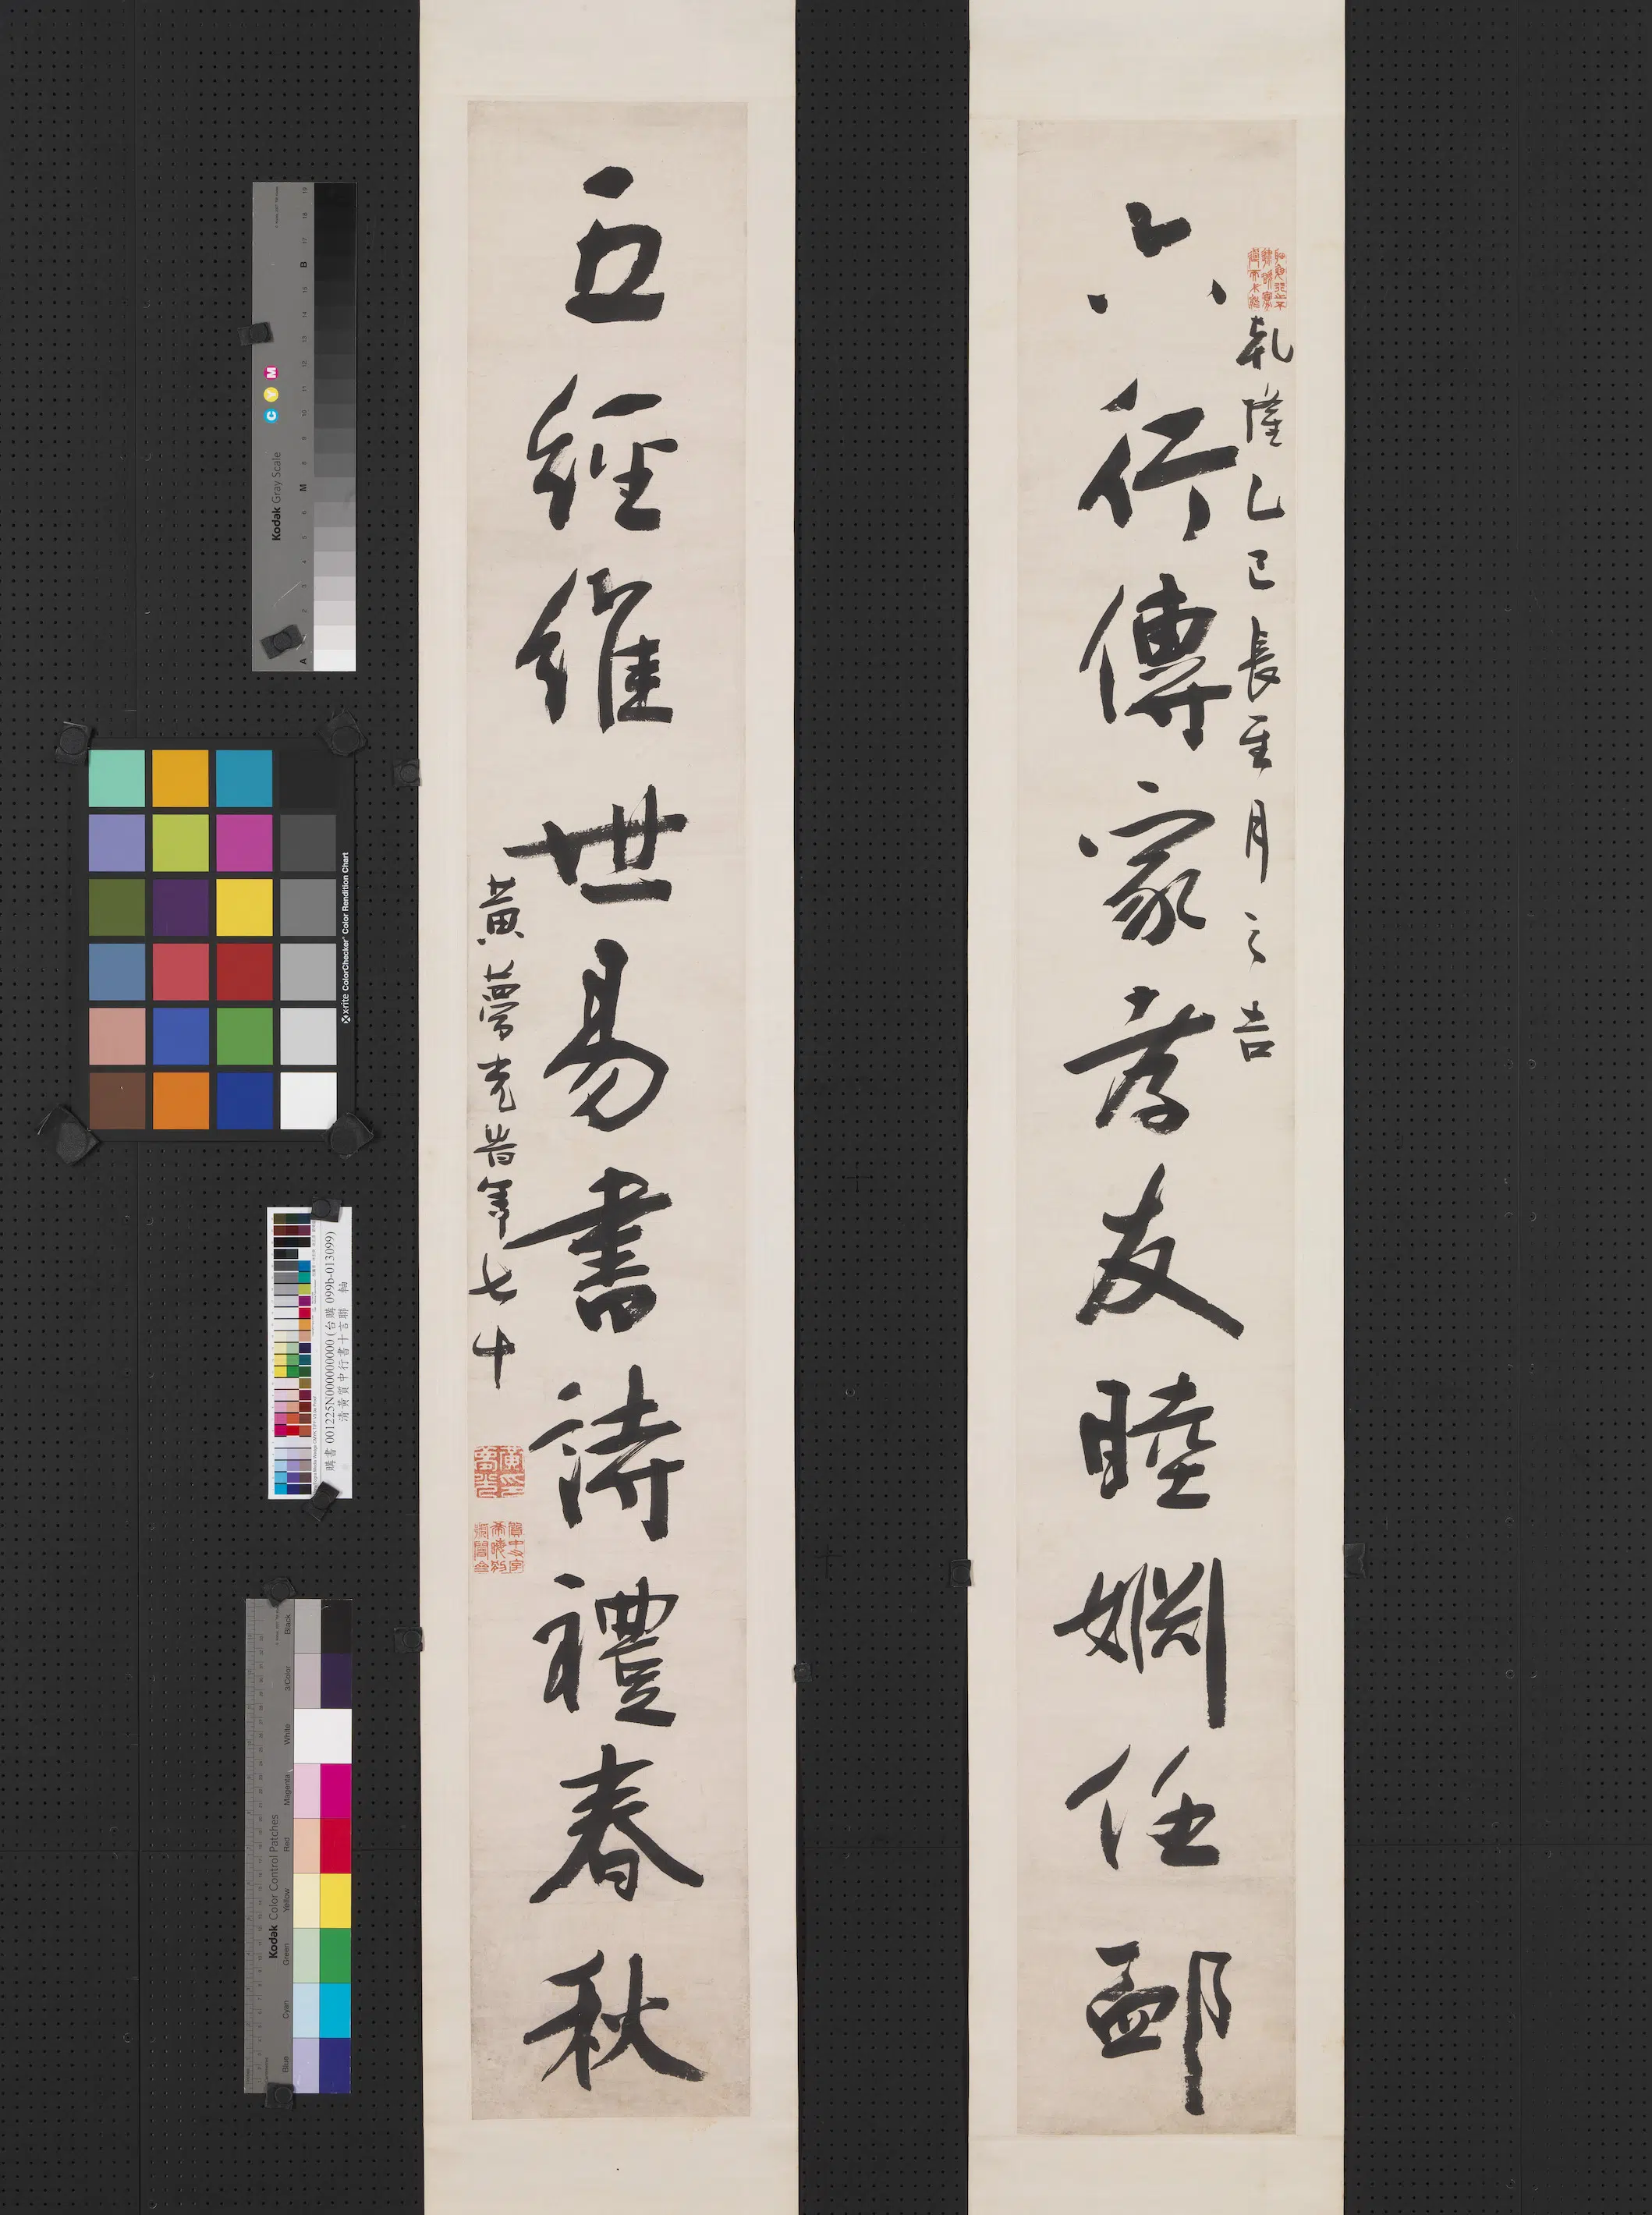 六行傳家孝友睦婣任卹
乾隆乙巳長至月之吉
五經維世易書詩禮春秋
黃夢光峕年七十
Kodak Gray Scale
C Y M
A
M
B
x-rite ColorChecker Color Rendition Chart
購書 001225N000000000 (台購 099b-013099)
清黃質中行書十言聯 軸
Kodak Color Control Patches
Blue
Cyan
Green
Yellow
Red
Magenta
White
3/Color
Black